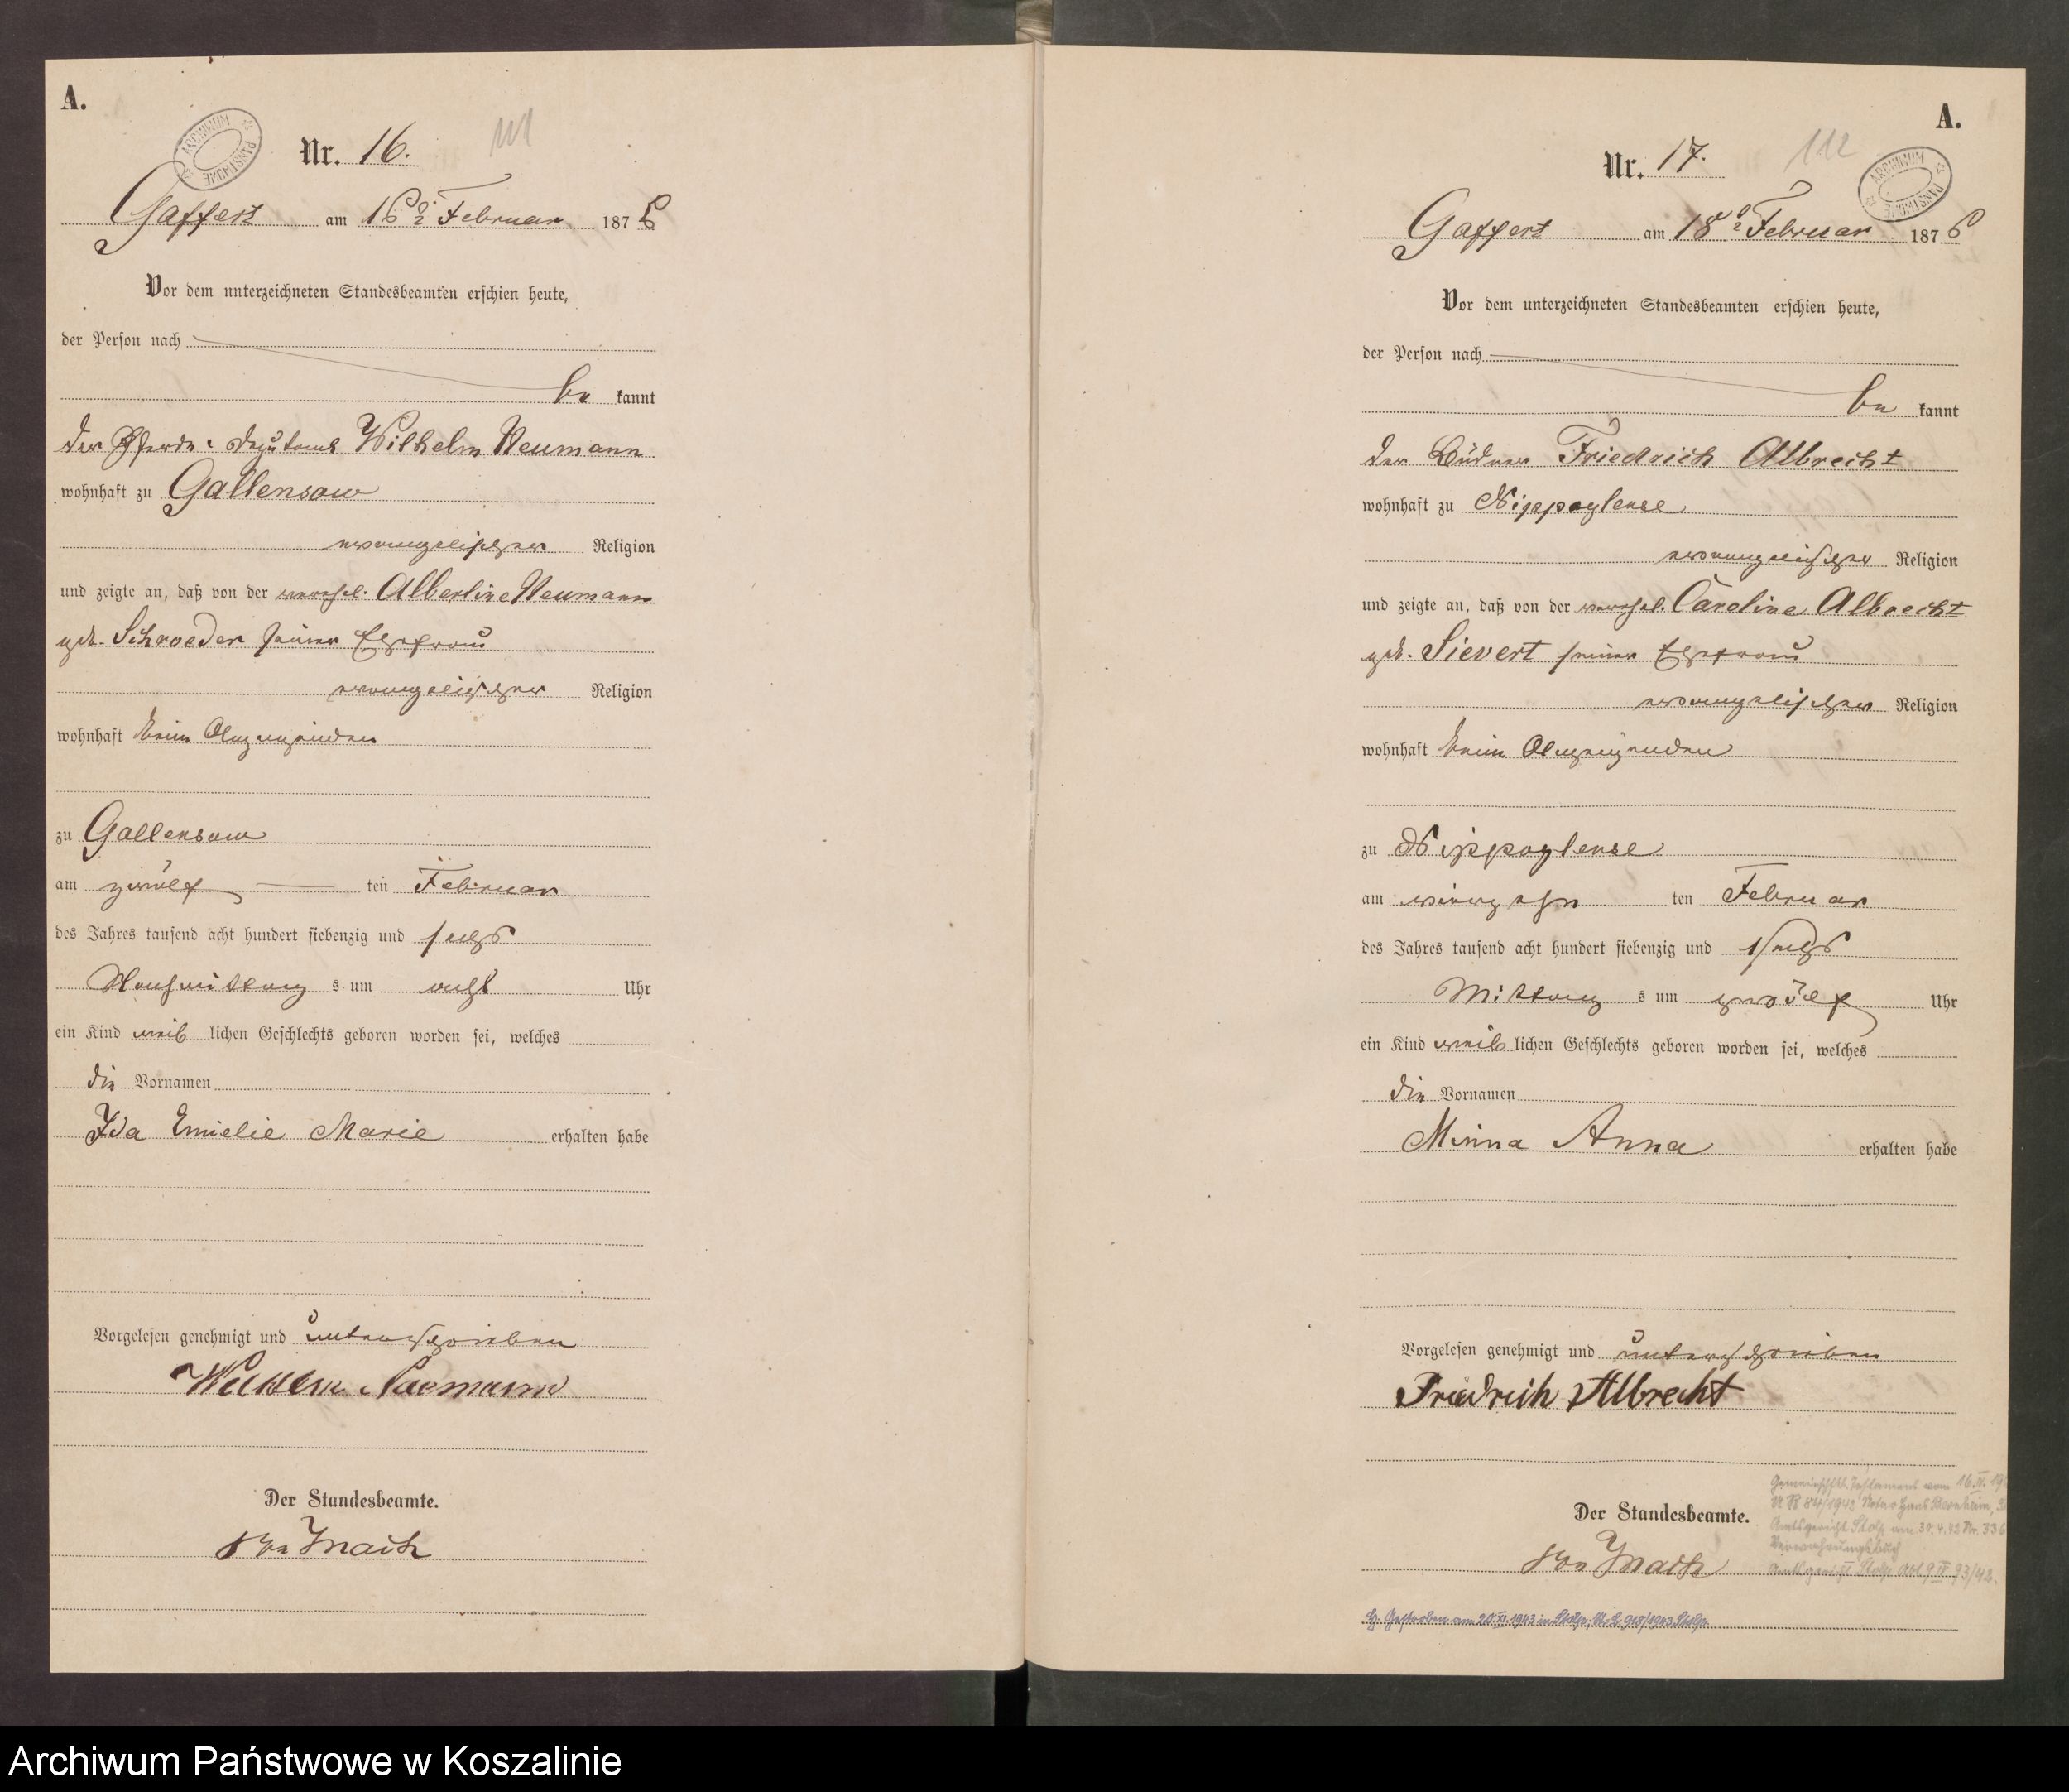 A.
ARCHIWUM PAŃSTWOWE
Nr. 16.
111
Gaffert am 16 Februar 1876
Vor dem unterzeichneten Standesbeamten erschien heute,
der Person nach
be kannt
der Pferde-Deputant Wilhelm Neumann
wohnhaft zu Gallensow
evangelischer Religion
und zeigte an, daß von der verehel. Albertine Neumann
geb. Schroeder seiner Ehefrau
evangelischer Religion
wohnhaft beim Anzeigenden
zu Gallensow
am zwölf ten Februar
des Jahres tausend acht hundert siebenzig und sechs
Nachmittag s um acht Uhr
ein Kind weib lichen Geschlechts geboren worden sei, welches
die Vornamen
Ida Emielie Marie erhalten habe
Vorgelesen genehmigt und unterschrieben
Wilhelm Neumann
Der Standesbeamte.
A.
ARCHIWUM PAŃSTWOWE
Nr. 17.
112
Gaffert am 18 Februar 1876
Vor dem unterzeichneten Standesbeamten erschien heute,
der Person nach
be kannt
der Büdner Friedrich Albrecht
wohnhaft zu Nippoglense
evangelischer Religion
und zeigte an, daß von der verehel. Caroline Albrecht
geb. Sievert seiner Ehefrau
evangelischer Religion
wohnhaft beim Anzeigenden
zu Nippoglense
am vierzehn ten Februar
des Jahres tausend acht hundert siebenzig und sechs
Mittag s um zwölf Uhr
ein Kind weib lichen Geschlechts geboren worden sei, welches
die Vornamen
Minna Anna erhalten habe
Vorgelesen genehmigt und unterschrieben
Friedrich Albrecht
Der Standesbeamte.
Gemeinschftl. Testament vom 16.
84/1942 Notar Hans
Amtsgericht Stolp am 30.4.42 Nr. 336
Verwahrungsbuch
Amtsgericht Stolp Abl 9 IV 93/42.
Gestorben am 20.XI.1943 in Stolp; St. A. 918/1943 Stolp.
Archiwum Państwowe w Koszalinie